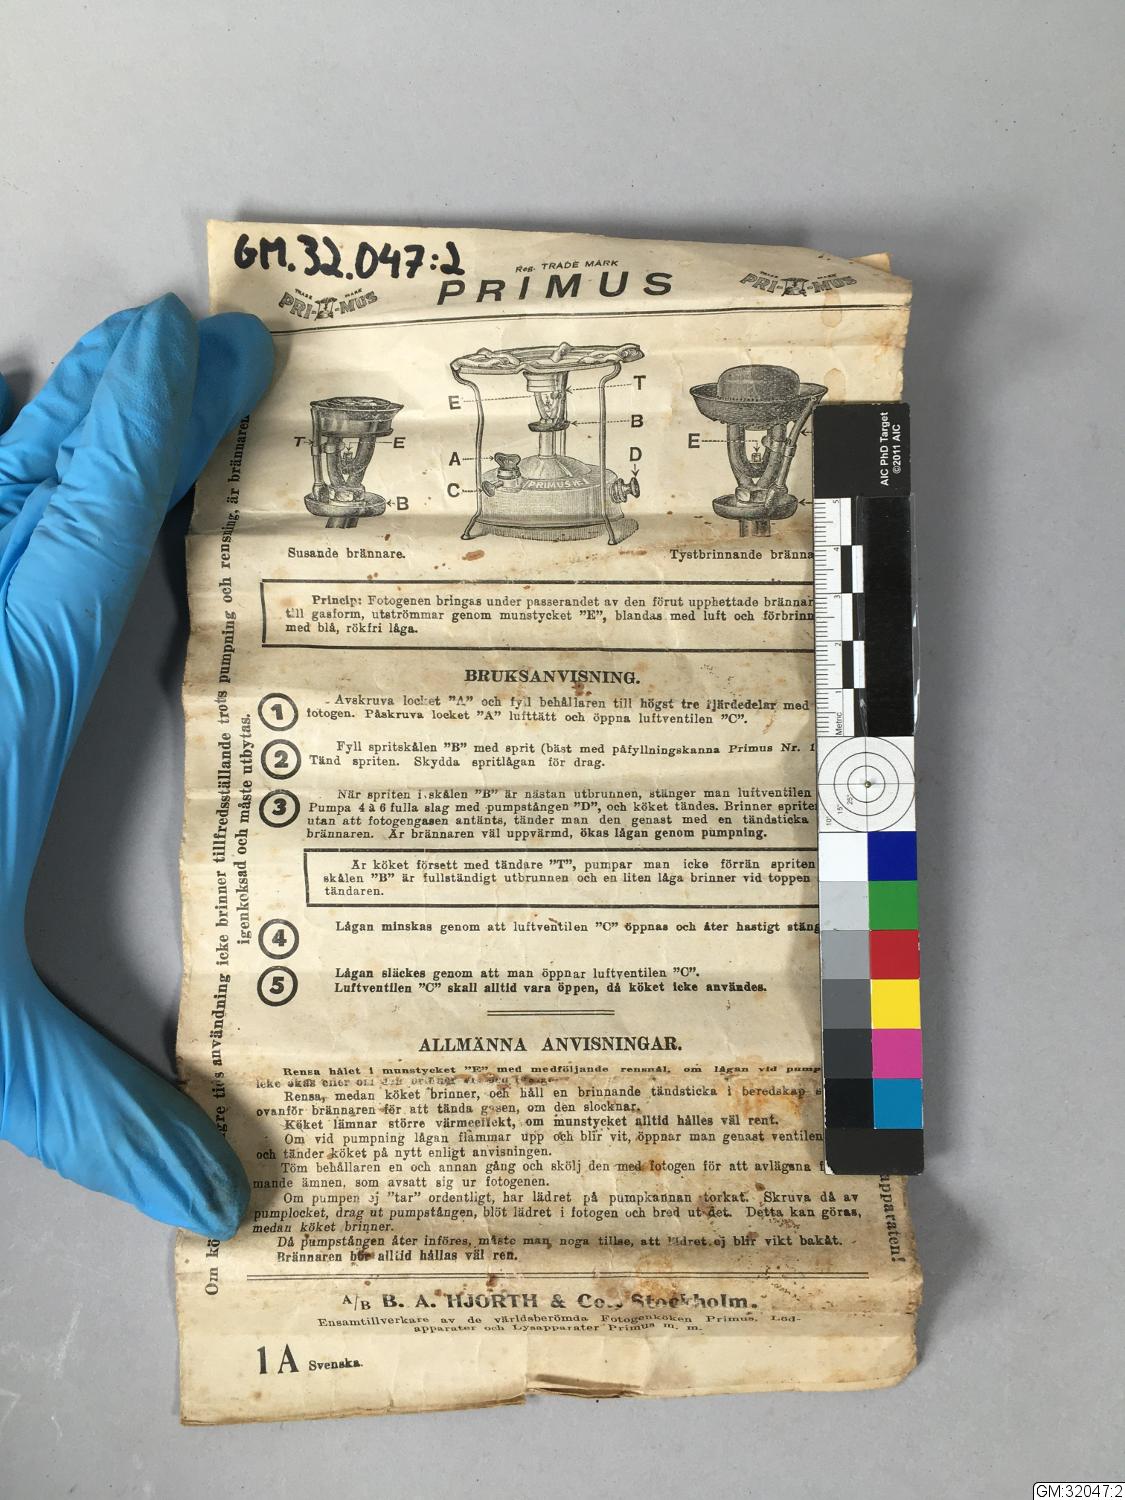 GM.32.047:2
REG. TRADE MARK
PRIMUS
TRADE MARK
PRI-MUS
TRADE MARK
PRI-MUS
T
E
B
E
A
C
T
B
D
PRIMUS Nº 1
E
Susande brännare.
Tystbrinnande bränna
Princip: Fotogenen bringas under passerandet av den förut upphettade brännar
till gasform, utströmmar genom munstycket "E", blandas med luft och förbrinn
med blå, rökfri låga.
BRUKSANVISNING.
1 Avskruva locket "A" och fyll behållaren till högst tre fjärdedelar med
fotogen. Påskruva locket "A" lufttätt och öppna luftventilen "C".
2 Fyll spritskålen "B" med sprit (bäst med påfyllningskanna Primus Nr. 1
Tänd spriten. Skydda spritlågan för drag.
3 När spriten i skålen "B" är nästan utbrunnen, stänger man luftventilen
Pumpa 4 à 6 fulla slag med pumpstången "D", och köket tändes. Brinner sprite
utan att fotogengasen antänts, tänder man den genast med en tändsticka
brännaren. Är brännaren väl uppvärmd, ökas lågan genom pumpning.
Är köket försett med tändare "T", pumpar man icke förrän spriten
skålen "B" är fullständigt utbrunnen och en liten låga brinner vid toppen
tändaren.
4 Lågan minskas genom att luftventilen "C" öppnas och åter hastigt stäng
5 Lågan släckes genom att man öppnar luftventilen "C".
Luftventilen "C" skall alltid vara öppen, då köket icke användes.
ALLMÄNNA ANVISNINGAR.
Rensa hålet i munstycket "E" med medföljande rensnål, om lågan vid pump
icke ökas eller om den brinner
Rensa, medan köket brinner, och håll en brinnande tändsticka i beredskap s
ovanför brännaren för att tända gasen, om den slocknar.
Köket lämnar större värmeeffekt, om munstycket alltid hålles väl rent.
Om vid pumpning lågan flammar upp och blir vit, öppnar man genast ventilen
och tänder köket på nytt enligt anvisningen.
Töm behållaren en och annan gång och skölj den med fotogen för att avlägsna f
mande ämnen, som avsatt sig ur fotogenen.
Om pumpen ej "tar" ordentligt, har lädret på pumpkannan torkat. Skruva då av
pumplocket, drag ut pumpstången, blöt lädret i fotogen och bred ut det. Detta kan göras,
medan köket brinner.
Då pumpstången åter införes, måste man noga tillse, att lädret ej blir vikt bakåt.
Brännaren bör alltid hållas väl ren.
A/B B. A. HJORTH & Co., Stockholm.
Ensamtillverkare av de världsberömda Fotogenköken Primus, Löd-
apparater och Lysapparater Primus m. m.
1 A Svenska.
Om kö gre tids användning icke brinner tillfredsställande trots pumpning och rensning, är brännaren
igenkoksad och måste utbytas.
apparaten!
AIC PhD Target
©2011 AIC
5
4
3
2
1
Metric
10°
15°
25°
GM:32047:2